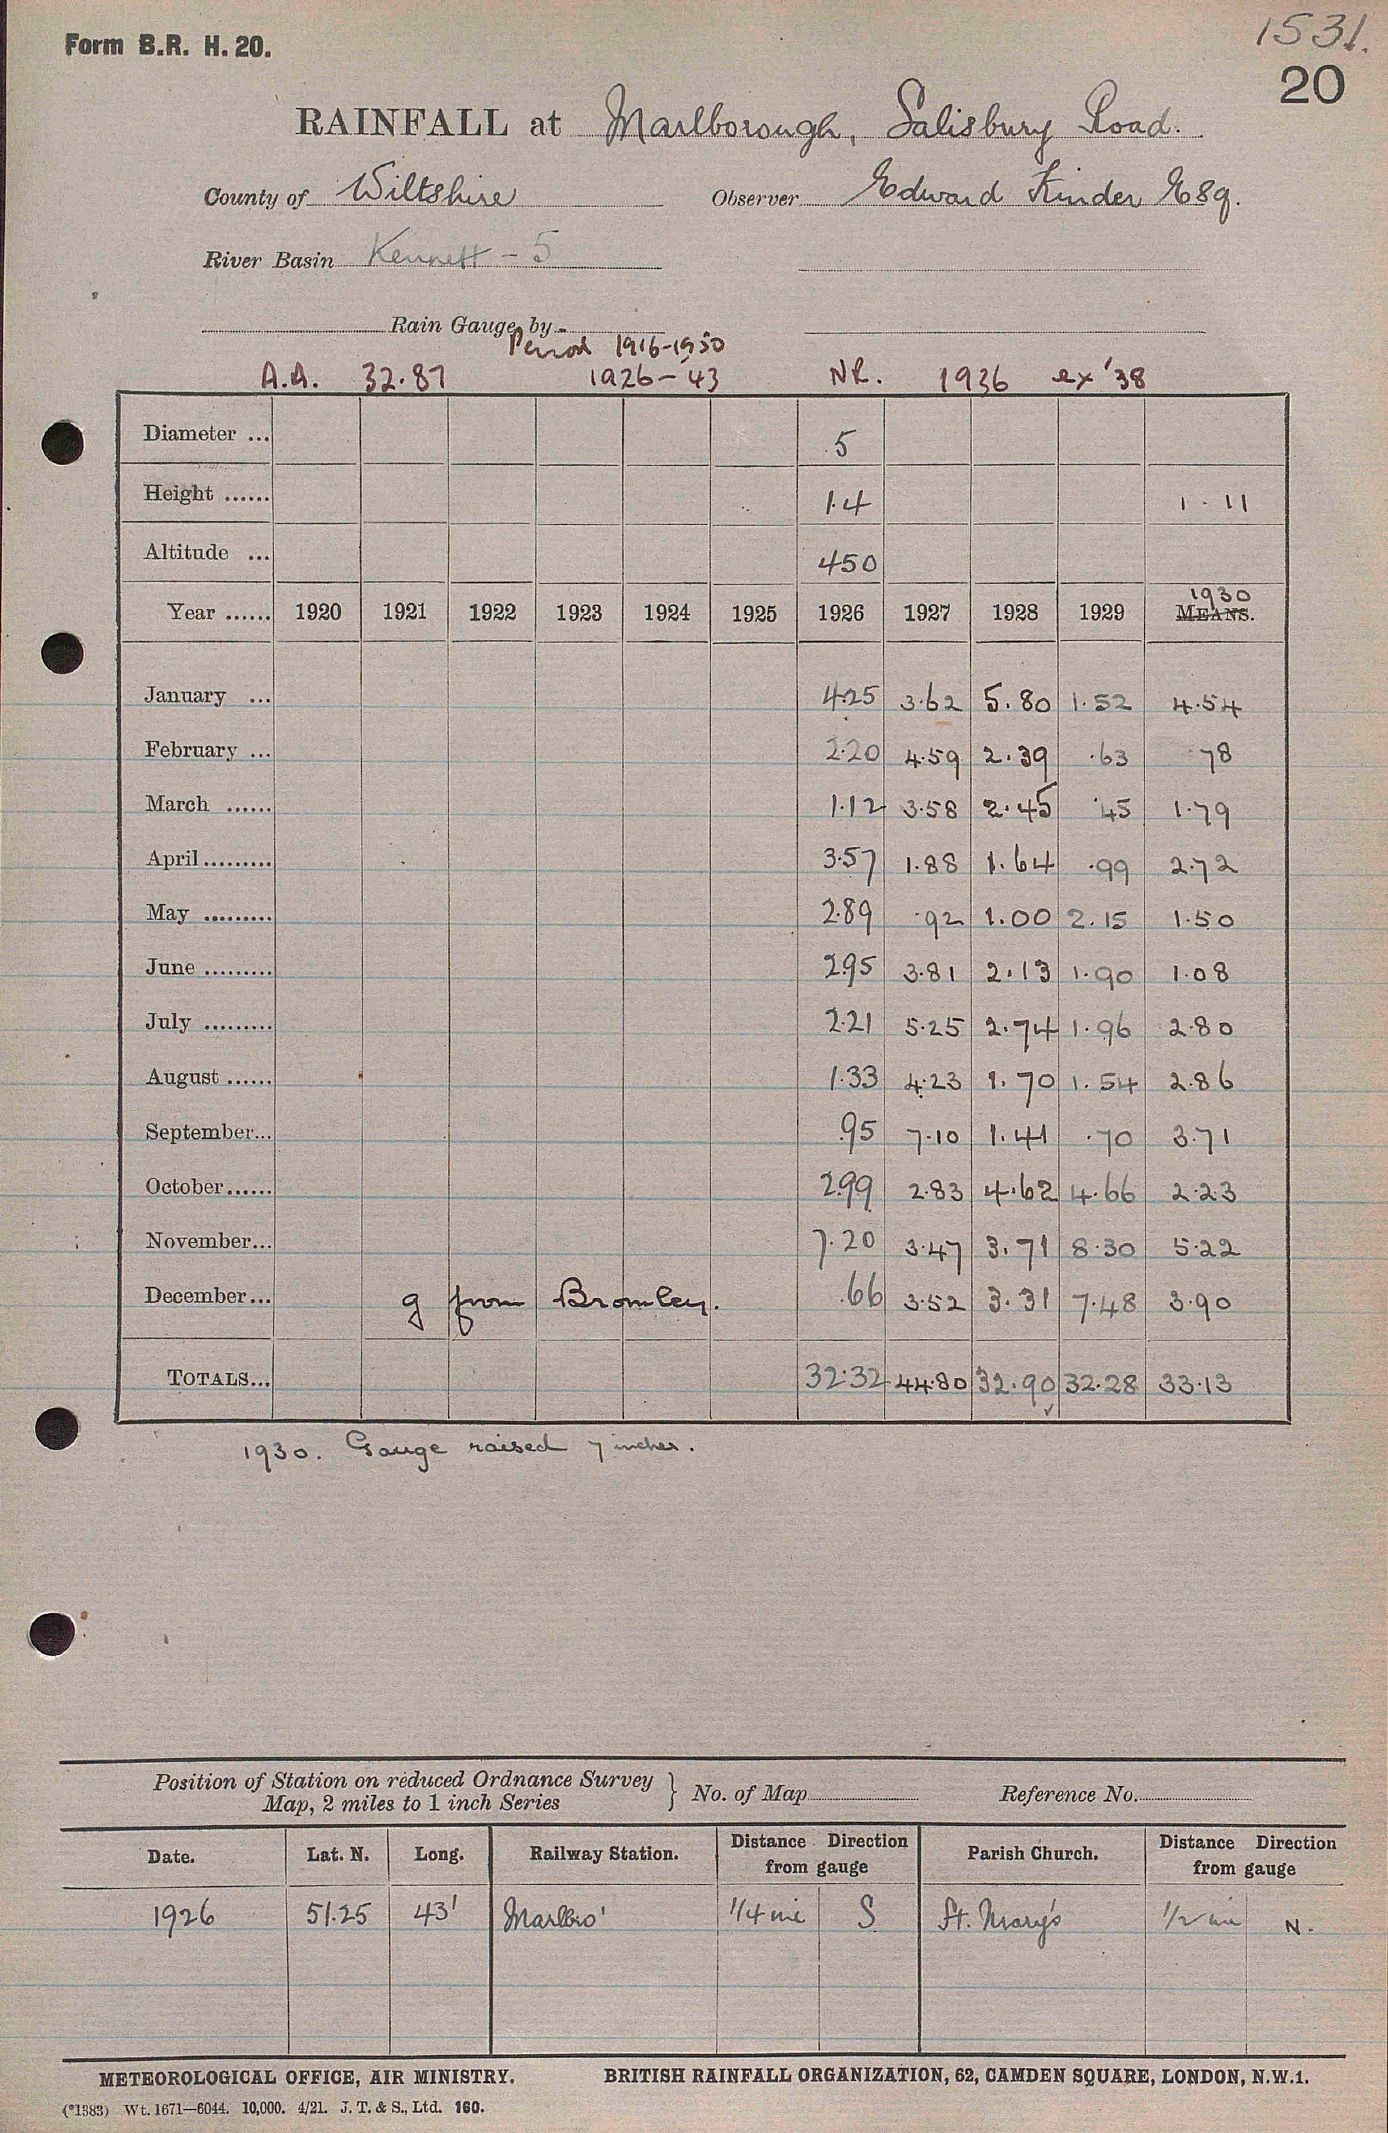 1531.
Form B.R. H. 20.
20
RAINFALL at Marlborough, Salisbury Road.
County of Wiltshire Observer Edward Kinder Esq.
River Basin Kennett - 5
Rain Gauge by
Period 1916-1950
A.A. 32.87 1926-'43 NR. 1936 ex '38
Diameter ... 5
Height ...... 1.4 1 - 11
Altitude ... 450
Year ...... 1920 1921 1922 1923 1924 1925 1926 1927 1928 1929 1930 MEANS.
January ... 4.25 3.62 5.80 1.52 4.54
February ... 2.20 4.59 2.39 .63 .78
March ...... 1.12 3.58 2.45 .45 1.79
April ......... 3.57 1.88 1.64 .99 2.72
May ......... 2.89 .92 1.00 2.15 1.50
June ......... 2.95 3.81 2.13 1.90 1.08
July ......... 2.21 5.25 2.74 1.96 2.80
August ...... 1.33 4.23 1.70 1.54 2.86
September... .95 7.10 1.41 .70 3.71
October...... 2.99 2.83 4.62 4.66 2.23
November... 7.20 3.47 3.71 8.30 5.22
December... g from Bromley. .66 3.52 3.31 7.48 3.90
TOTALS... 32.32 44.80 32.90 32.28 33.13
1930. Gauge raised 7 inches.
Position of Station on reduced Ordnance Survey
Map, 2 miles to 1 inch Series } No. of Map Reference No.
Date. Lat. N. Long. Railway Station. Distance Direction from gauge Parish Church. Distance Direction from gauge
1926 51.25 43' Marlbro' 1/4 mi S St. Mary's 1/2 mi N.
METEOROLOGICAL OFFICE, AIR MINISTRY. BRITISH RAINFALL ORGANIZATION, 62, CAMDEN SQUARE, LONDON, N.W.1.
(*1383) Wt. 1671—6044. 10,000. 4/21. J. T. & S., Ltd. 160.